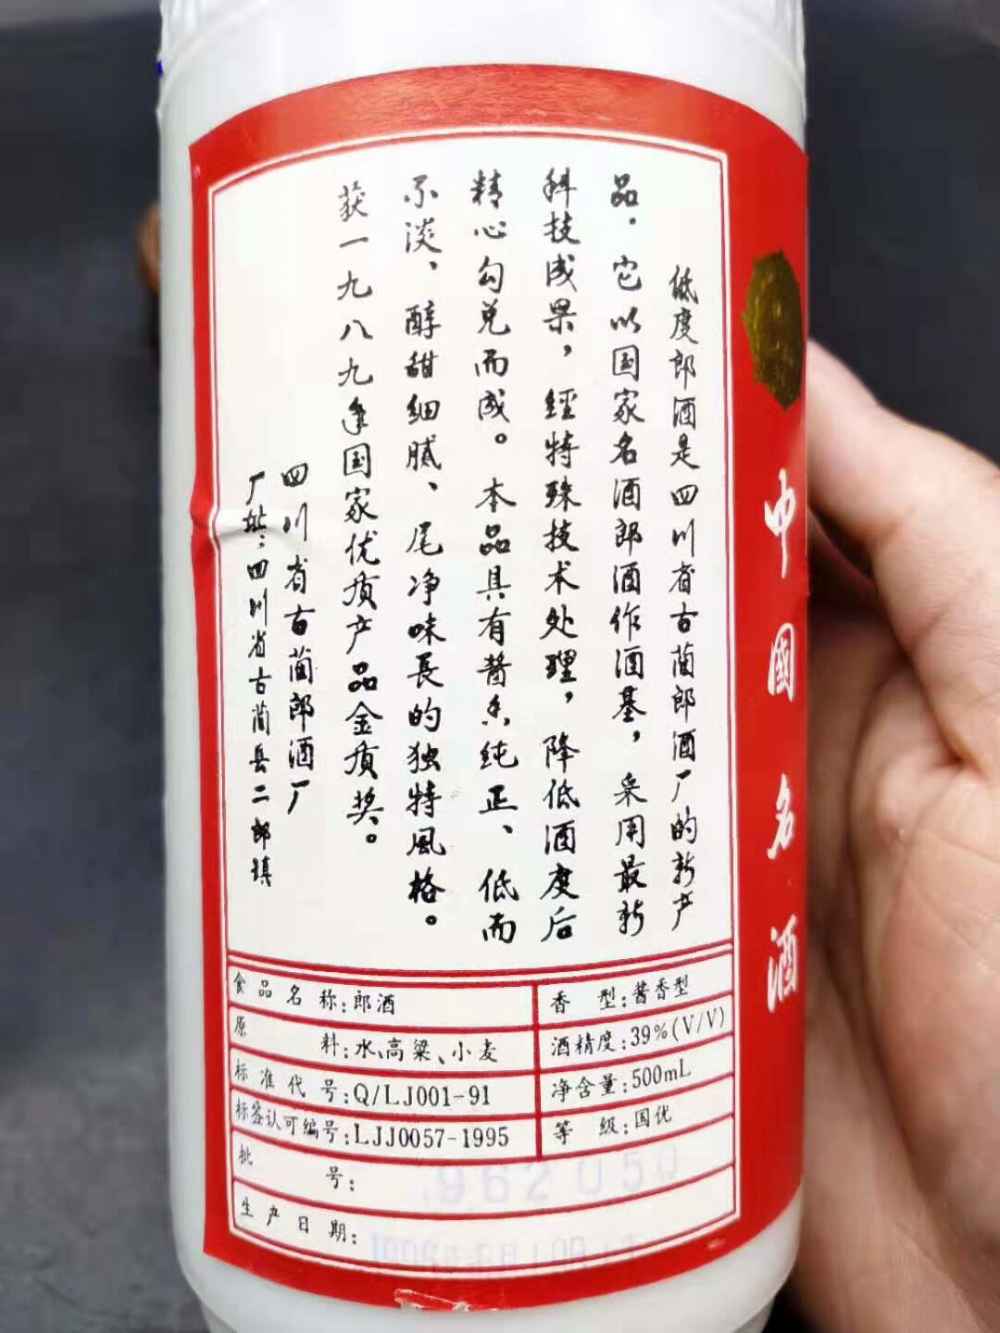 低度郎酒是四川省古蔺郎酒厂的新产
品。它以国家名酒郎酒作酒基，采用最新
科技成果，經特殊技术处理，降低酒度后
精心勾兑而成。本品具有酱香纯正、低而
不淡、醇甜细腻、尾净味長的独特風格。
获一九八九年国家优质产品金质奖。
四川省古蔺郎酒厂
厂址：四川省古蔺县二郎镇
中國名酒
食品名称:郎酒
香型:酱香型
原料:水、高粱、小麦
酒精度:39%(V/V)
标准代号:Q/LJ001-91
净含量:500mL
标签认可编号:LJJ0057-1995
等级:国优
批号:
962050
生产日期: